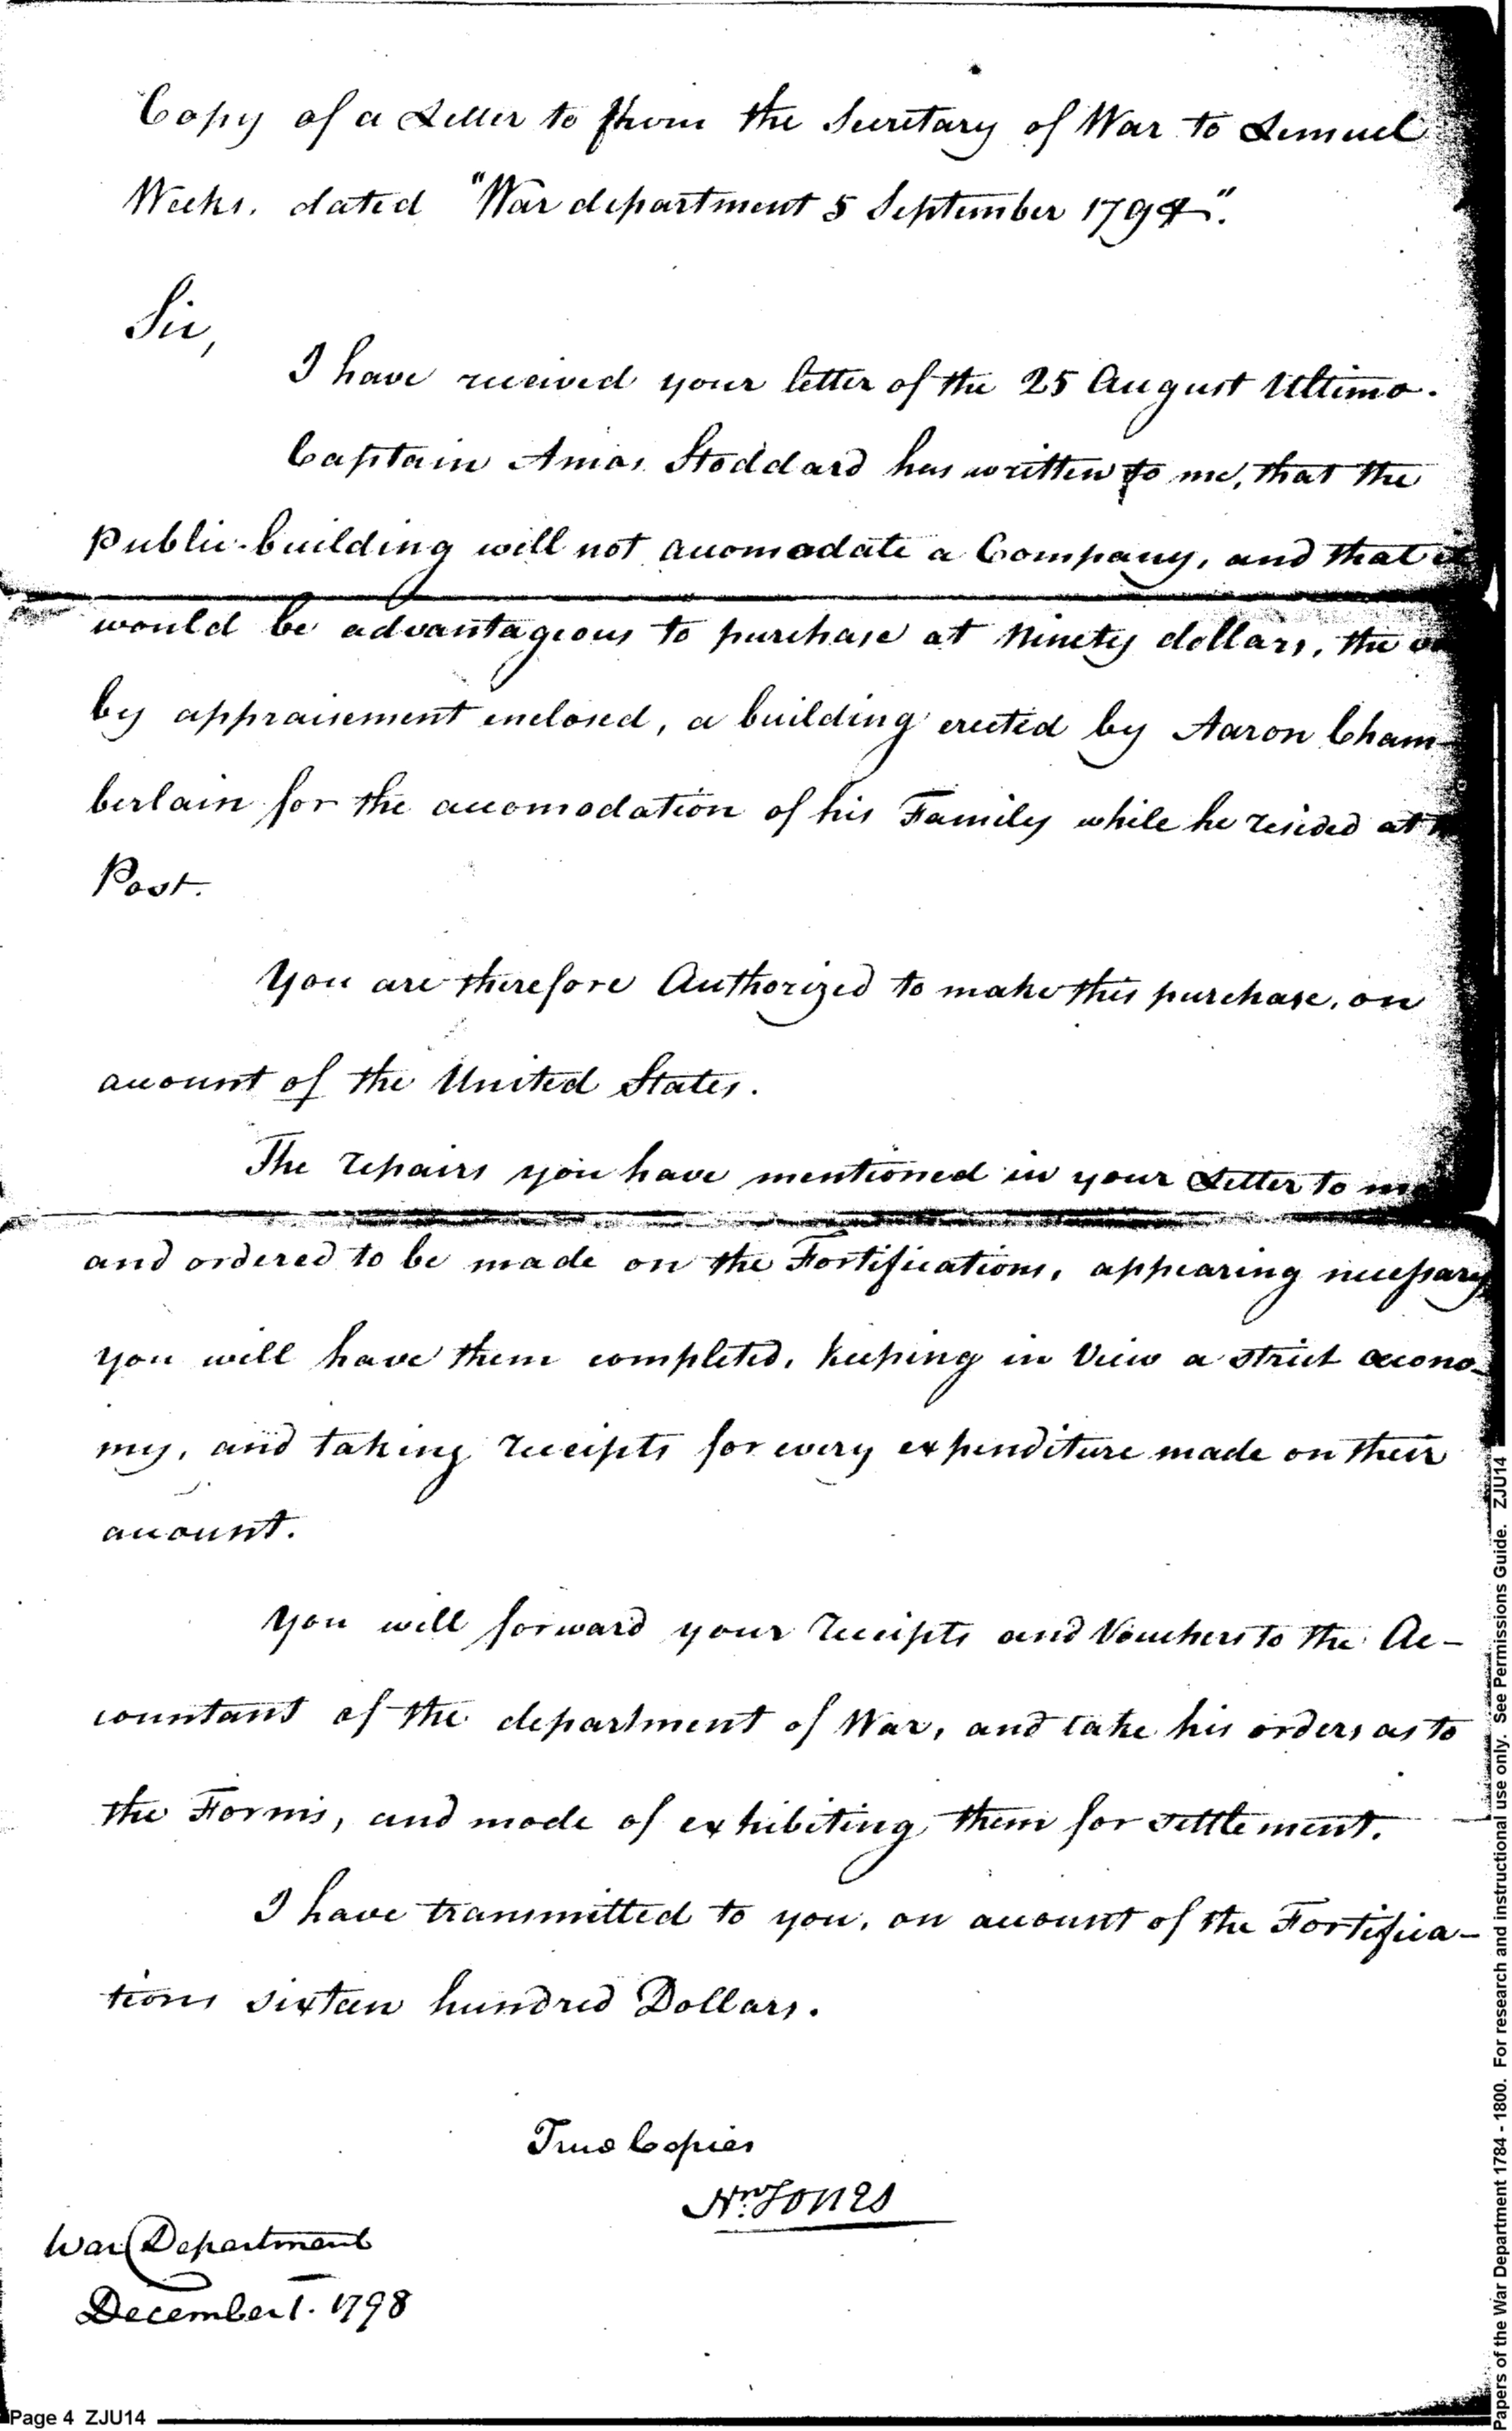 Copy of a Letter to from the Secretary of War to Lemuel
Weeks. dated "War department 5 September 1794".
Sir,
I have received your letter of the 25 August Ultimo.
Captain Amos Stoddard has written to me, that the
public building will not accomodate a Company, and that
would be advantageous to purchase at Ninety dollars, the
by appraisement enclosed, a building erected by Aaron Cham-
berlain for the accomodation of his Family while he resided at
Post.
You are therefore Authorized to make this purchase, on
account of the United States.
The repairs you have mentioned in your Letter to me
and ordered to be made on the Fortifications, appearing necessary
you will have them completed, keeping in View a strict œcono-
my, and taking receipts for every expenditure made on their
account.
You will forward your receipts and Vouchers to the Ac-
countant of the department of War, and take his orders as to
the Forms, and mode of exhibiting them for settlement.
I have transmitted to you, on account of the Fortifica-
tions sixteen hundred Dollars.
True Copies
Nn. Jones
War Department
December 1. 1798
Page 4 ZJU14
Papers of the War Department 1784 - 1800. For research and instructional use only. See Permissions Guide. ZJU14